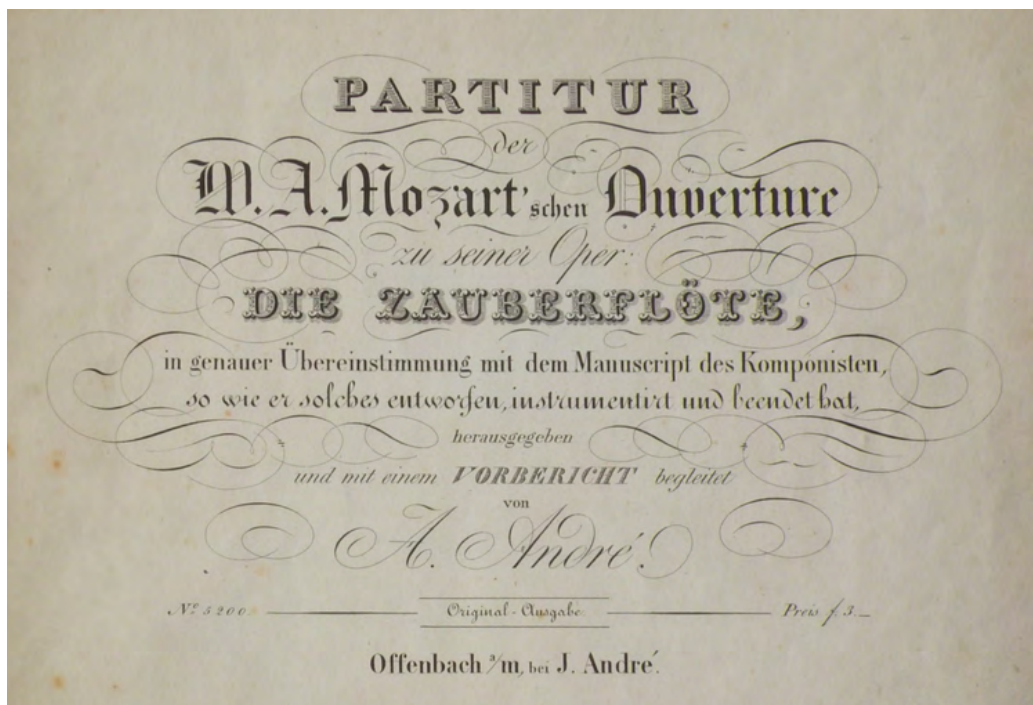 PARTITUR
der
W. A. Mozart'schen Ouverture
zu seiner Oper:
DIE ZAUBERFLÖTE,
in genauer Übereinstimmung mit dem Manuscript des Komponisten,
so wie er solches entworfen, instrumentirt und beendet hat,
herausgegeben
und mit einem VORBERICHT begleitet
von
A. André.
No. 5200. Original-Ausgabe. Preis f. 3._
Offenbach a/m, bei J. André.